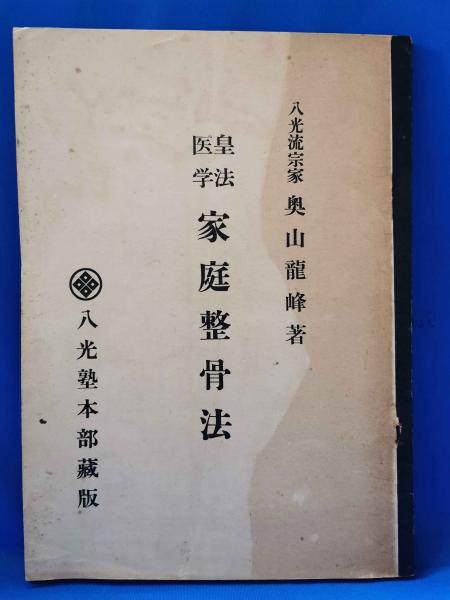 八光流宗家 奥山龍峰著
皇法医学 家庭整骨法
八光塾本部蔵版